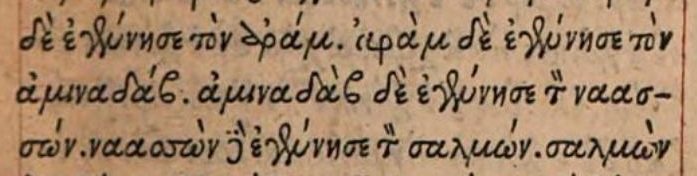 δὲ ἐγέννησε τὸν ἀράμ. ἀρὰμ δὲ ἐγέννησε τὸν
ἀμιναδάβ. ἀμιναδὰβ δὲ ἐγέννησε τὸν ναασ-
σών. ναασσὼν δὲ ἐγέννησε τὸν σαλμών. σαλμὼν